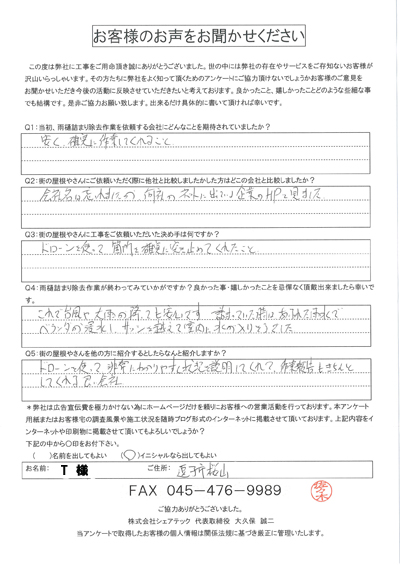 お客様のお声をお聞かせください
この度は弊社に工事をご用命頂き誠にありがとうございました。世の中には弊社の存在やサービスをご存知ないお客様が
沢山いらっしゃいます。その方たちに弊社をよく知って頂くためのアンケートにご協力頂けないでしょうかお客様のご意見を
お聞かせいただき今後の活動に反映させていただきたいと考えております。良かったこと、嬉しかったことどのような些細な事
でも結構です。是非ご協力お願い致します。出来るだけ具体的に書いて頂ければ幸いです。
Q1：当初、雨樋詰まり除去作業を依頼する会社にどんなことを期待されていましたか？
安く、確実に作業してくれること
Q2：街の屋根やさんにご依頼いただく際に他社と比較しましたかした方はどこの会社と比較しましたか？
会社名は忘れましたの 何社の ネットに出ている企業のHPを見ました
Q3：街の屋根やさんに工事をご依頼いただいた決め手は何ですか？
ドローンを使って、箇所を確実に突き止めてくれたこと
Q4：雨樋詰まり除去作業が終わってみていかがですか？良かった事・嬉しかったことを忌憚なく頂戴出来ましたら幸いで
す。
これで台風や大雨の降っても安心です
ベランダが浸水し、サッシを越えて室内に水が入りそうでした
Q5：街の屋根やさんを他の方に紹介するとしたらなんと紹介しますか？
ドローンを使って、非常にわかりやすく状況を説明してくれて、作業報告もきちんと
してくれる良い会社
＊弊社は広告宣伝費を極力かけない為にホームページだけを頼りにお客様への営業活動を行っております。本アンケート
用紙またはお客様宅の調査風景や施工状況を随時ブログ形式のインターネットに掲載させて頂いております。上記内容をイ
ンターネットや印刷物に掲載させて頂いてもよろしいでしょうか？
下記の中から〇印をお付下さい。
（　）名前を出してもよい （〇）イニシャルなら出してもよい
お名前： T 様 ご住所： 逗子市桜山
FAX 045-476-9989
佐々木
ご協力ありがとうございました。
株式会社シェアテック 代表取締役 大久保 誠二
当アンケートで取得したお客様の個人情報は関係法規に基づき厳正に管理いたします。